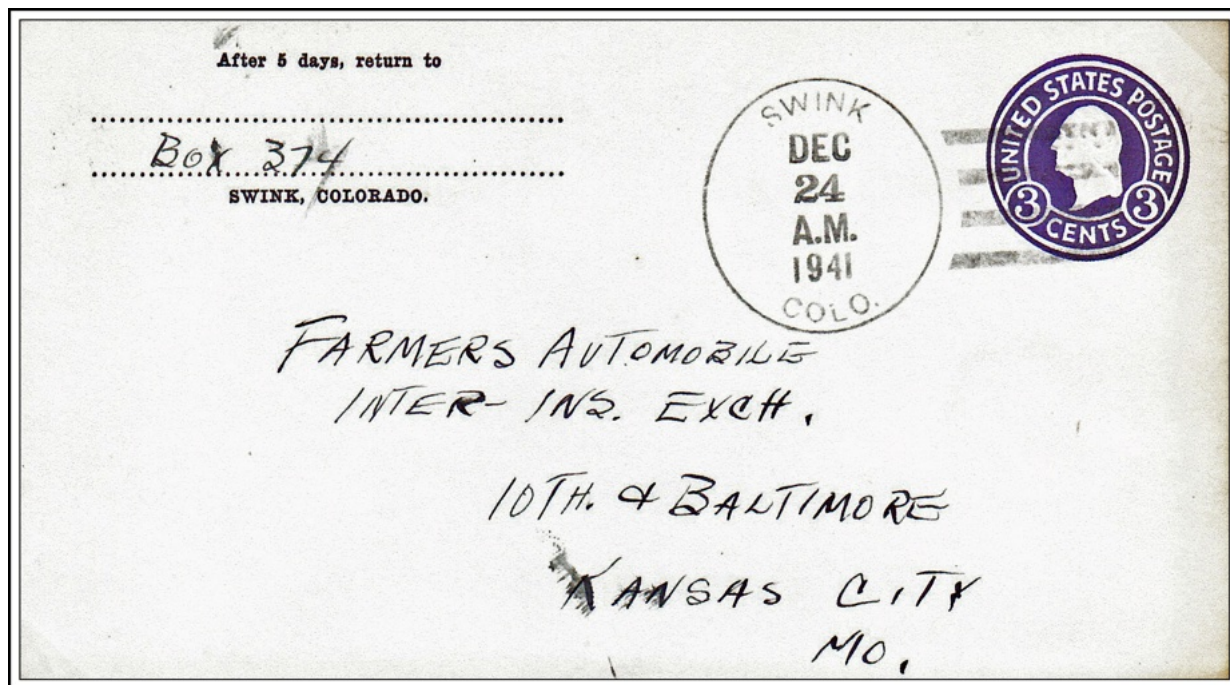 After 5 days, return to
Box 374
SWINK, COLORADO.
SWINK
DEC
24
A.M.
1941
COLO.
UNITED STATES POSTAGE
3 3
CENTS
FARMERS AUTOMOBILE
INTER-INS. EXCH.
10TH. & BALTIMORE
KANSAS CITY
MO.